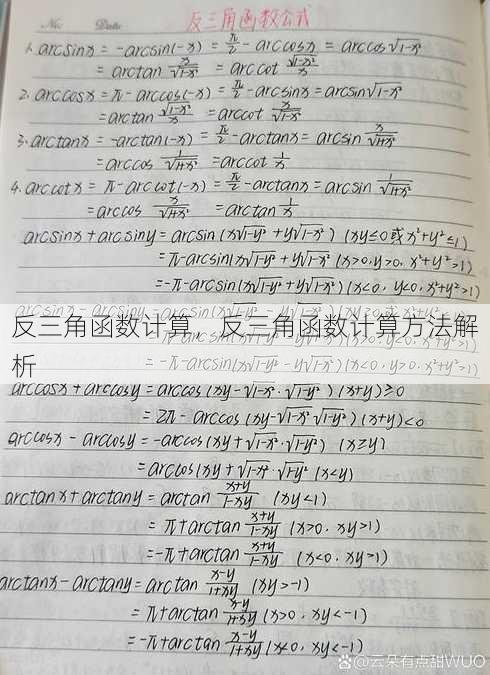 No. Date 反三角函数公式
1. arcsinx = -arcsin(-x) = π/2 - arccosx = arccos√1-x²
= arctan x/√1-x² = arccot √1-x²/x
2. arccosx = π - arccos(-x) = π/2 - arcsinx = arcsin√1-x²
= arctan √1-x²/x = arccot x/√1-x²
3. arctanx = -arctan(-x) = π/2 - arctanx = arcsin x/√1+x²
= arccos 1/√1+x² = arccot 1/x
4. arccotx = π - arccot(-x) = π/2 - arctanx = arcsin 1/√1+x²
= arccos x/√1+x² = arctan 1/x
arcsinx + arcsiny = arcsin (x√1-y² + y√1-x²) (xy≤0或x²+y²≤1)
= π - arcsin(x√1-y² + y√1-x²) (x>0, y>0, x²+y²>1)
= -π - arcsin(x√1-y² + y√1-x²) (x<0, y<0, x²+y²>1)
反三角函数计算，反三角函数计算方法解
析
arccosx + arccosy = arccos (xy - √1-x²·√1-y²) (x+y)≥0
= 2π - arccos (xy - √1-x²·√1-y²) (x+y)<0
arccosx - arccosy = -arccos (xy + √1-x²·√1-y²) (x≥y)
= arccos (xy + √1-x²·√1-y² (x<y)
arctanx + arctany = arctan x+y/1-xy (xy<1)
= π + arctan x+y/1-xy (x>0, xy>1)
= -π + arctan x+y/1-xy (x<0, xy>1)
arctanx - arctany = arctan x-y/1+xy (xy>-1)
= π + arctan x-y/1+xy (x>0, xy<-1)
= -π + arctan x-y/1+xy (x<0, xy<-1)
@云朵有点甜WUO